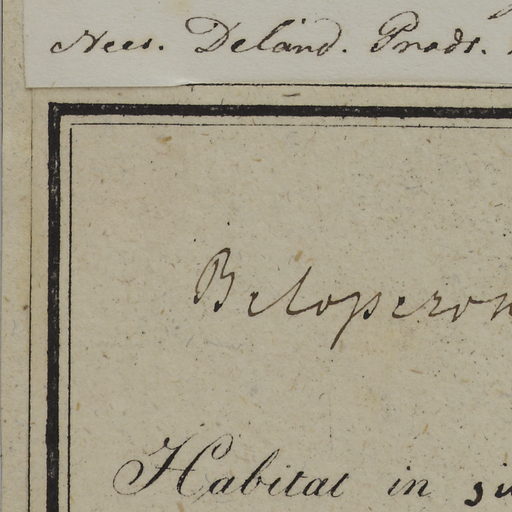 Nees. Deland. Prodr.
Beloperon
Habitat in